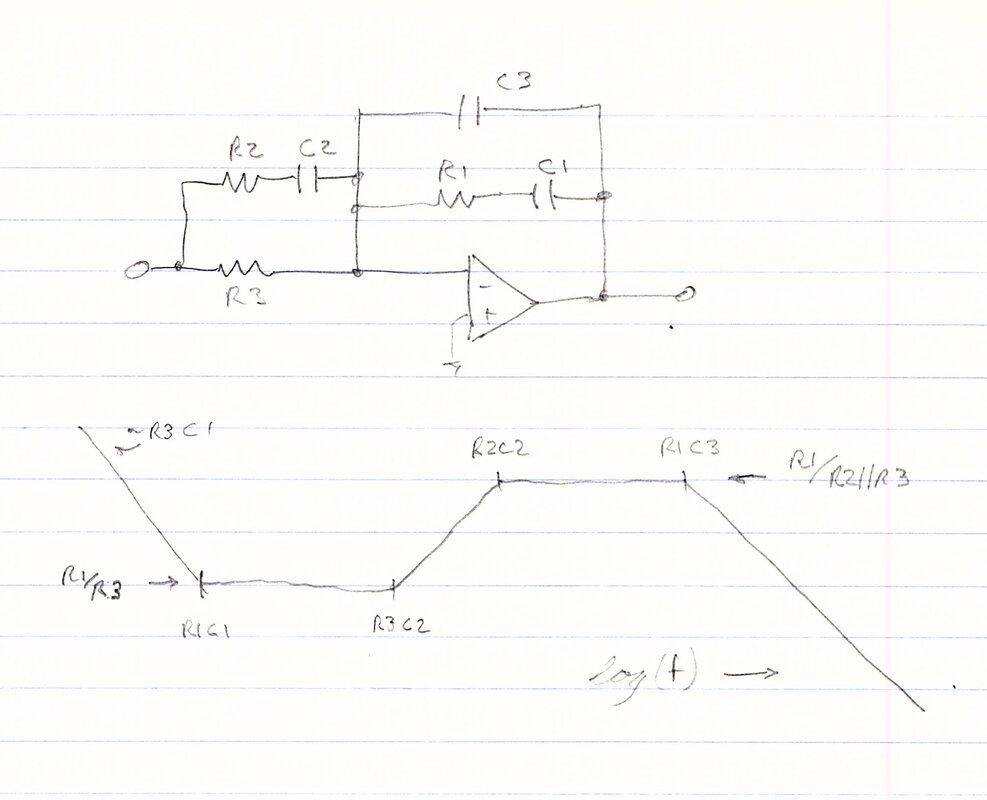 C3
R2 C2
R1 C1
R3
-
+
~R3C1
R2C2 R1C3
R1/R2||R3
R1/R3
R1C1 R3C2
log(f)